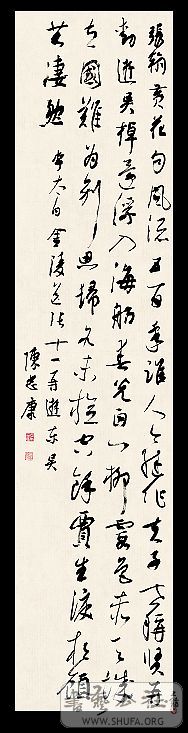 張翰黃花句風流五百年誰人今繼作夫子世稱賢再
動遊吳棹還浮入海船春光白門柳霞色赤城天
去國難為別思歸各未旋空餘賈生淚相顧
共淒然 李太白金陵送張十一再遊东吳
陳忠康
WWW.SHUFA.ORG